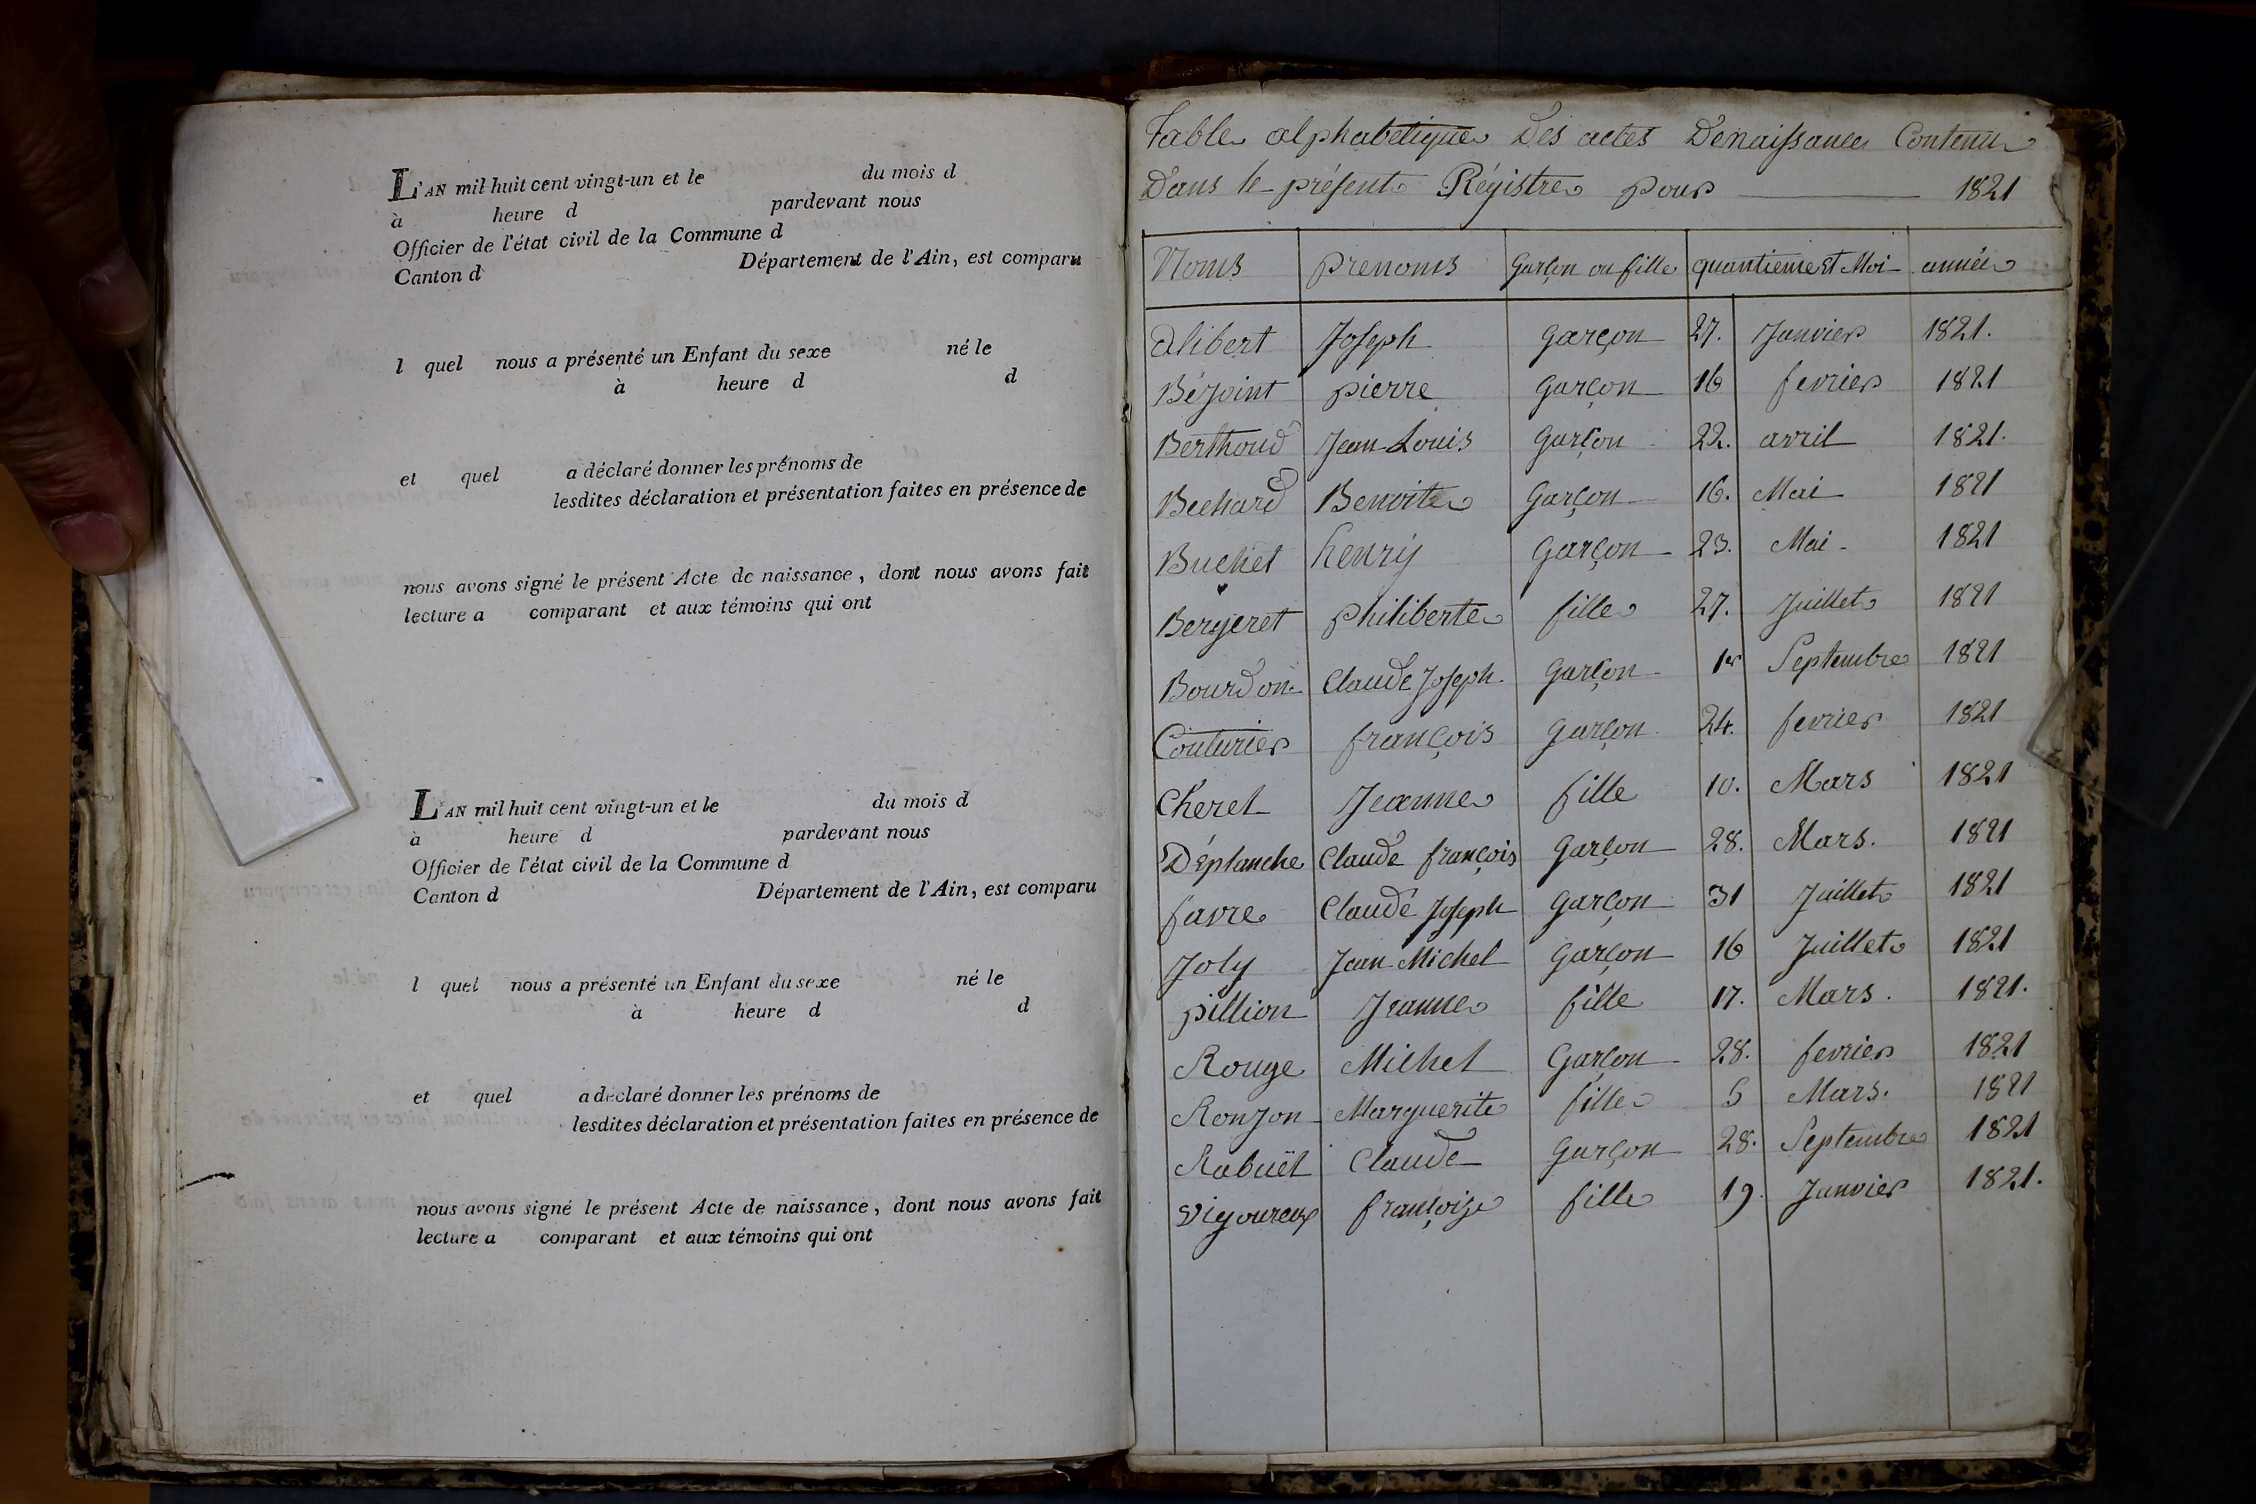 L'AN mil huit cent vingt-un et le du mois d
à heure d pardevant nous
Officier de l'état civil de la Commune d
Canton d Département de l'Ain, est comparu
l quel nous a présenté un Enfant du sexe né le
à heure d d
et quel a déclaré donner les prénoms de
lesdites déclaration et présentation faites en présence de
nous avons signé le présent Acte de naissance, dont nous avons fait
lecture a comparant et aux témoins qui ont
L'AN mil huit cent vingt-un et le du mois d
à heure d pardevant nous
Officier de l'état civil de la Commune d
Canton d Département de l'Ain, est comparu
l quel nous a présenté un Enfant du sexe né le
à heure d d
et quel a déclaré donner les prénoms de
lesdites déclaration et présentation faites en présence de
nous avons signé le présent Acte de naissance, dont nous avons fait
lecture a comparant et aux témoins qui ont
Table alphabetique Des actes Denaissance Contenu
Dans le présent Régistre pour 1821
Noms prenoms Garçon ou fille quantieme et Moi année
Alibert Joseph garçon 27. Janvier 1821.
Béjoint pierre garçon 16 fevrier 1821
Berthoud Jean Louis garçon 22. avril 1821.
Bechard Benoite Garçon 16. Mai 1821
Buchet henry Garçon 23. Mai 1821
Bergeret philiberte fille 27. Juillet 1821
Bourdon Claude Joseph garçon 1er Septembre 1821
Couturier françois garçon 24. fevrier 1821
Cheret Jeanne fille 10. Mars 1821
Déplanche Claude françois garçon 28. Mars. 1821
favre Claude Joseph garçon 31 Juillet 1821
Joly Jean Michel garçon 16 Juillet 1821
pillion Jeanne fille 17. Mars. 1821.
Rouge Michel Garçon 28. fevrier 1821
Ronjon Marguerite fille 5 Mars. 1821
Rabuël Claude garçon 28. Septembre 1821
Vigoureux françoise fille 19. Janvier 1821.